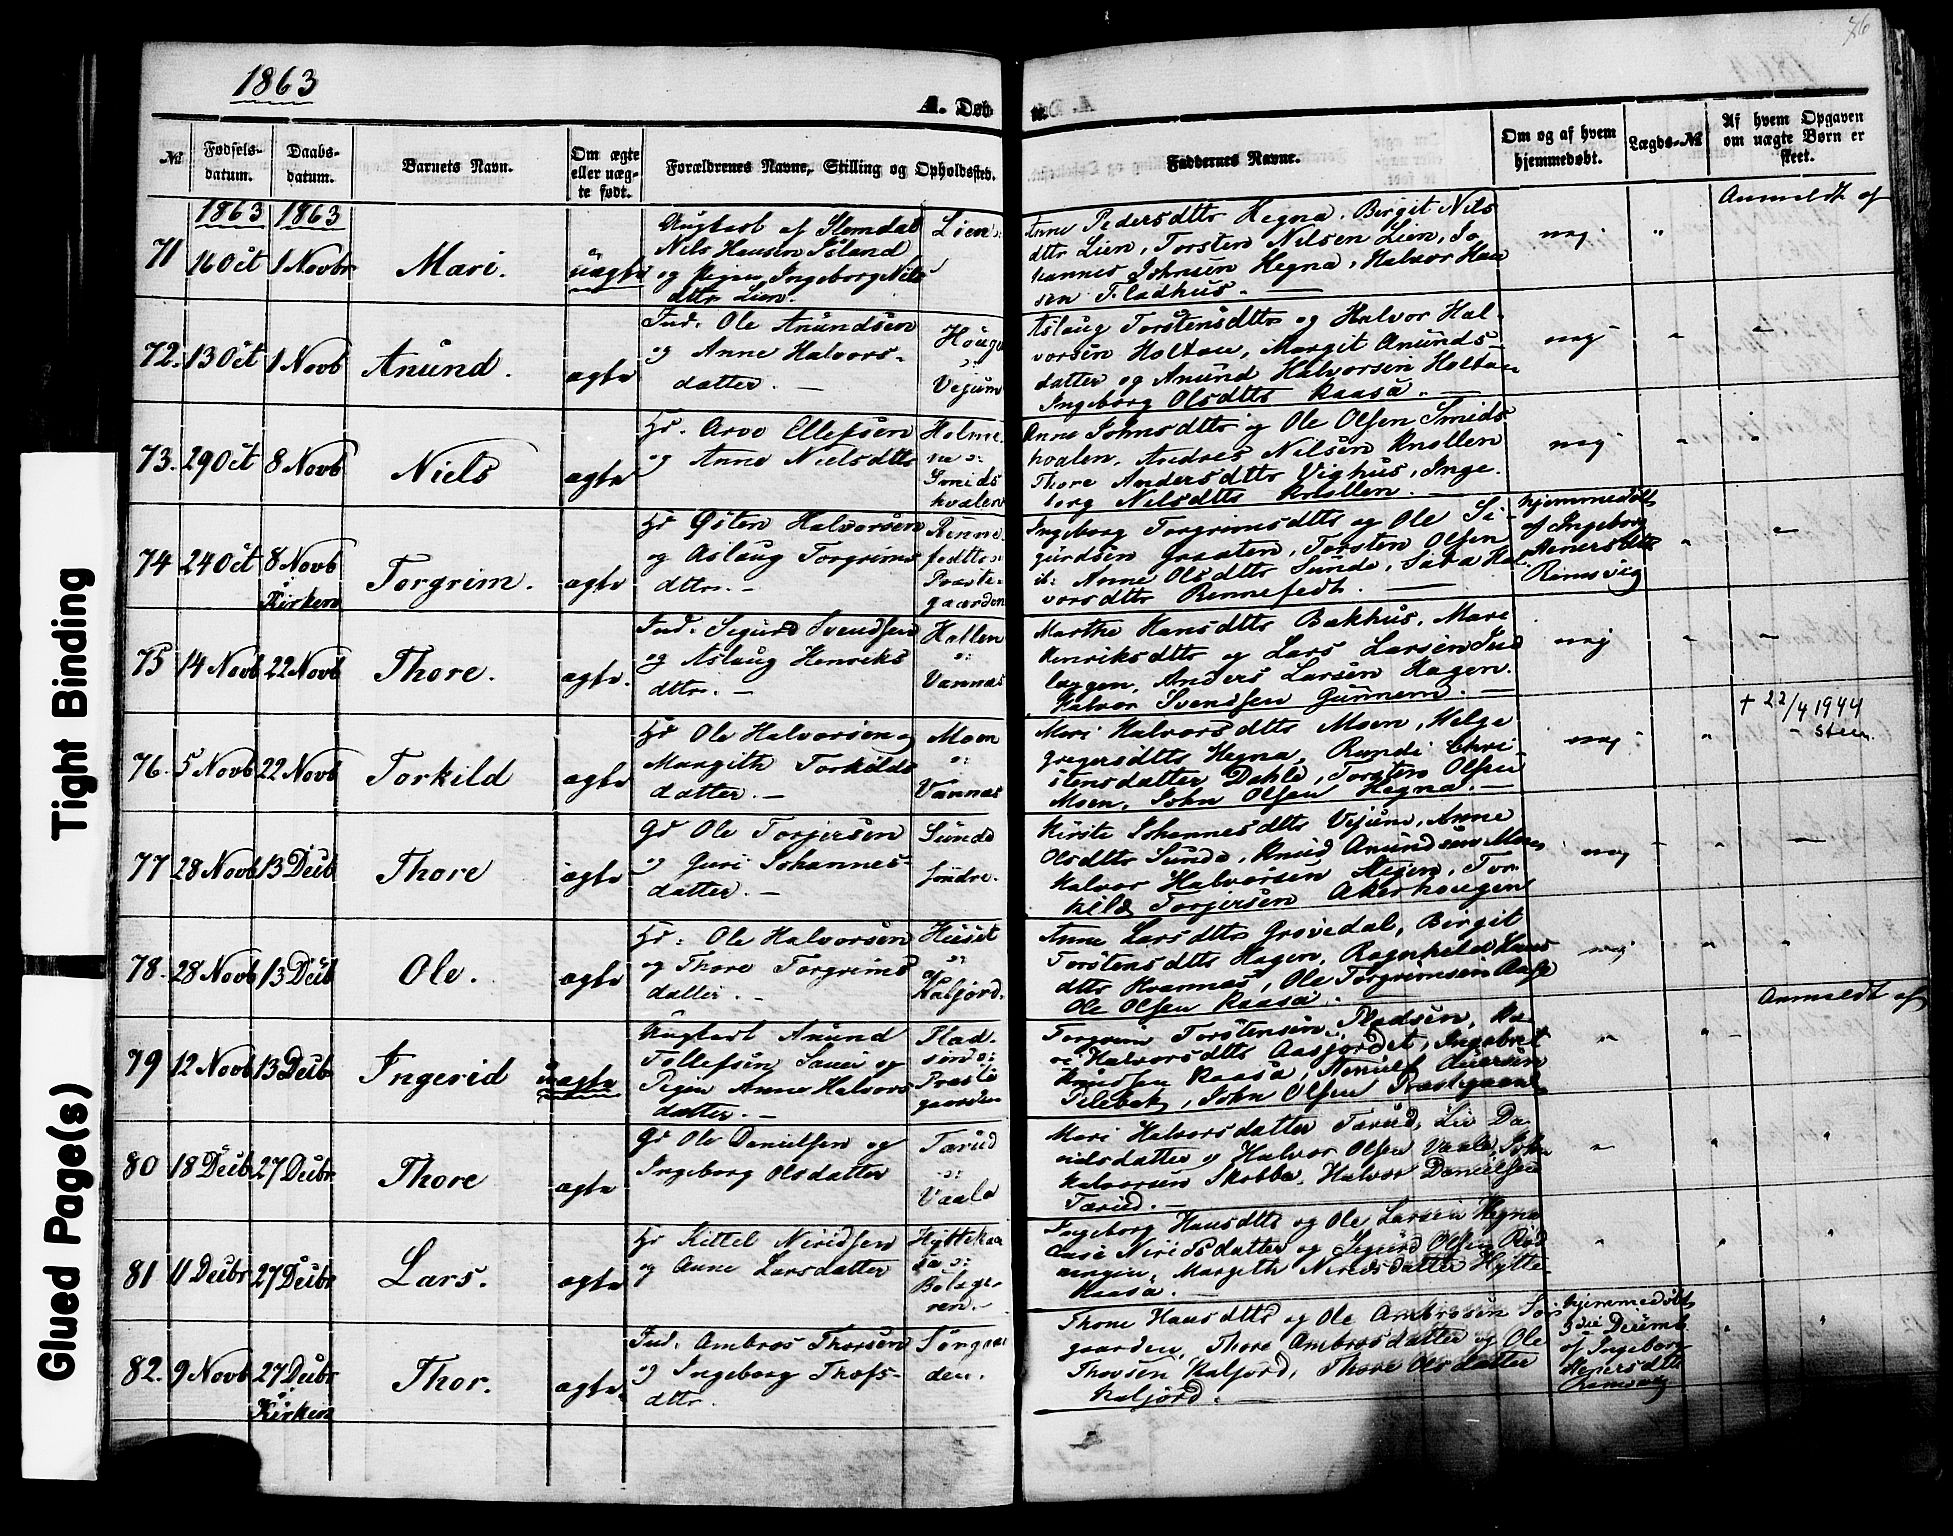 1863
76
A. Døb
te.
Tight Binding
Glued Page(s)
№
Fødsels-
datum.
Daabs-
datum.
Barnets Navn.
Om ægte
eller uæg-
te født.
Forældrenes Navne, Stilling og Opholdssted.
Faddernes Navne.
Om og af hvem
hjemmedøbt.
Lægds-№
Af hvem Opgaven
om uægte Børn er
skeet.
1863 1863
71 16 Oct 1 Novbr Mari. uægte
Ungkarl af Slemdal
Nils Hansen
og Pigen Ingeborg Nils
dttr Lien.
Lien
Anne Pedersdttr Hegna, Birgit Nils
dttr Lien, Torsten Nilsen Lien, Jo
hannes Johnsen Hegna, Halvor Han
sen Fladhus. —
nej "
Anmeldt af
72. 13 Oct 1 Novb Anund. ægte
Ind. Ole Anundsen
og Anne Halvors-
datter. —
Vejum
Aslaug Torstensdttr og Halvor Hal-
vorsen Holtan, Margit Anunds-
datter og Anund Halvorsen Holtan
Ingeborg Olsdttr Raasa. —
nej " "
73. 29 Oct 8 Novb Niels ægte
Gr. Avo Ellefsen
og Anne Nielsdttr
Holme
ne o:
Smids
hvalen
Anne Johnsdttr og Ole Olsen Smids
hvalen, Andres Nilsen Knollen
Thore Andersdttr Vighus, Inge
borg Nilsdttr Knollen. —
nej " "
74 24 Oct 8 Novb
Kirken
Torgrim. ægte
Gr Østen Halvorsen
og Aslaug Torgrims
dttr. —
Renne
fedt o:
Præste-
gaarden
Ingeborg Torgrimsdttr og Ole Si-
gurdsen Graaten, Torsten Olsen
ib: Anne Olsdttr Sunde, Sara Hal
vorsdttr Rennefedt. —
hjemmedøbt
af Ingeborg
Renersdttr
Ramsvig
" "
75 14 Novb 22 Novb Thore. ægte.
Ind. Sigurd Svendsen
og Aslaug Henriks
dttr. —
Hatlen
o:
Vannas
Marthe Hansdttr Bakhus, Mari
Henriksdttr og Lars Larsen Ind
læggen, Anders Larsen Hagen.
Halvor Svendsen Gunnem. —
nej " "
76. 5 Novb 22 Novb Torkild ægte
Gr Ole Halvorsen og
Margith Torkilds
datter. —
Moen
o:
Vannas
Mari Halvorsdttr Moen, Helge
Gregersdttr Hegna, Randi Chri-
stensdatter Dahle, Torsten Olsen
Moen, John Olsen Hegna. —
nej " "
+ 22/4 1944
- Steen.
77 28 Novb 13 Decbr Thore ægte
Gr Ole Torjersen
og Guri Johannes-
datter. —
Sunde
søndre.
Kirste Johannesdttr Vejum, Anne
Olsdttr Sunde, Knud Anundsen Moen
Halvor Halvorsen Stejen, Tor
kild Torjersen Akerhaugen
nej " —
78. 28 Novb 13 Decb Ole. ægte
Gr: Ole Halvorsen
og Thore Torgrims
datter. —
Huset
o:
Kaljord.
Anne Larsdttr Grovedal, Birgit
Torstensdttr Hagen, Ragnhild Hans
dttr Kvannas, Ole Torgrimsen Aase
Ole Olsen Raasa. —
nej " "
79 12 Novb 13 Decbr Ingerid uægte
Ungkarl Anund
Tollefsen Sauer og
Pigen Anne Halvors
datter. —
Plad-
sen o:
Præste
gaarden
Torgrim Torstensen Pladsen, Ka-
ri Halvorsdttr Aasjordet, Ingebret
Knudsen Raasa, Neriul Aversen
Tilebak, John Olsen Præstegaard
" " -
Anmeldt af
80 18 Decbr 27 Decbr Thore ægte
Gr Ole Danielsen og
Ingeborg Olsdatter
Tærud
o:
Vaale
Mari Halvorsdatter Tærud, Liv Da
nielsdatter og Halvor Olsen Vaale, John
Halvorsen Skobba, Halvor Danielsen
Tærud. —
" " "
81 11 Decbr 27 Decbr Lars. ægte
Gr Kittel Neridsen
og Anne Larsdatter
Hyttekaa
sa o:
Bolager-
ren. —
Ingeborg Hansdttr og Ole Larsen Hegna
Aase Neridsdatter og Sigurd Olsen Rød
ningen, Margith Neridsdatter Hytte-
kaasa.
" " "
82. 9 Novb 27 Decbr
Kirken
Thor. ægte
Ind. Ambros Thorsen
og Ingeborg Thofs-
dttr.
Sørgaar
den.
Thone Hansdttr og Ole Ambrosen Sør
gaarden, Thore Ambrosdatter og Ole
Thovsen Kaljord, Thore Olsdatter
Kaljord. —
hjemmedøbt
3die Decemb.
af Ingeborg
Renersdttr
Ramsvig
" "